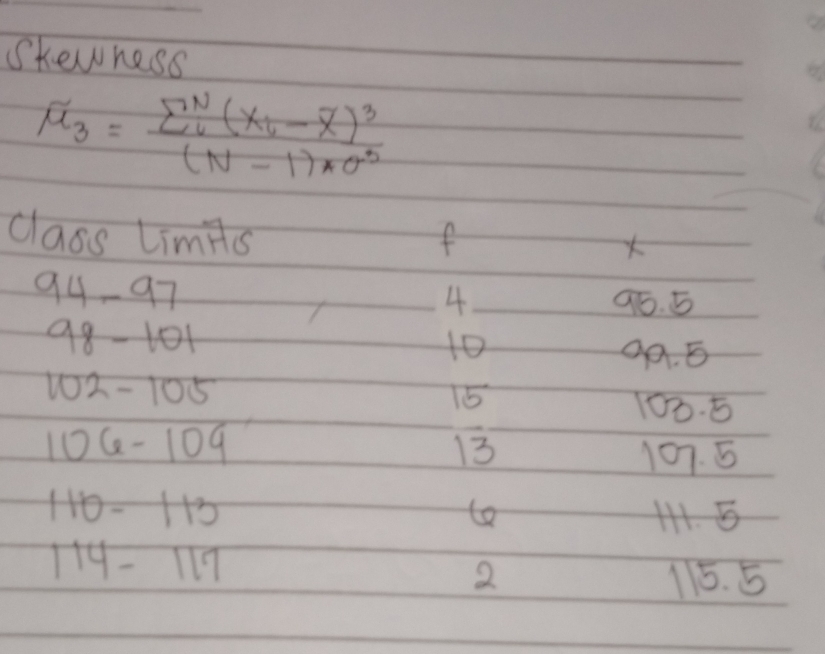 Skewness
μ̃₃ = Σᵢᴺ (xᵢ - x̄)³ / (N - 1) * σ³
Class Limits f x
94 - 97 4 95.5
98 - 101 10 99.5
102 - 105 15 103.5
106 - 109 13 107.5
110 - 113 6 111.5
114 - 117 2 115.5